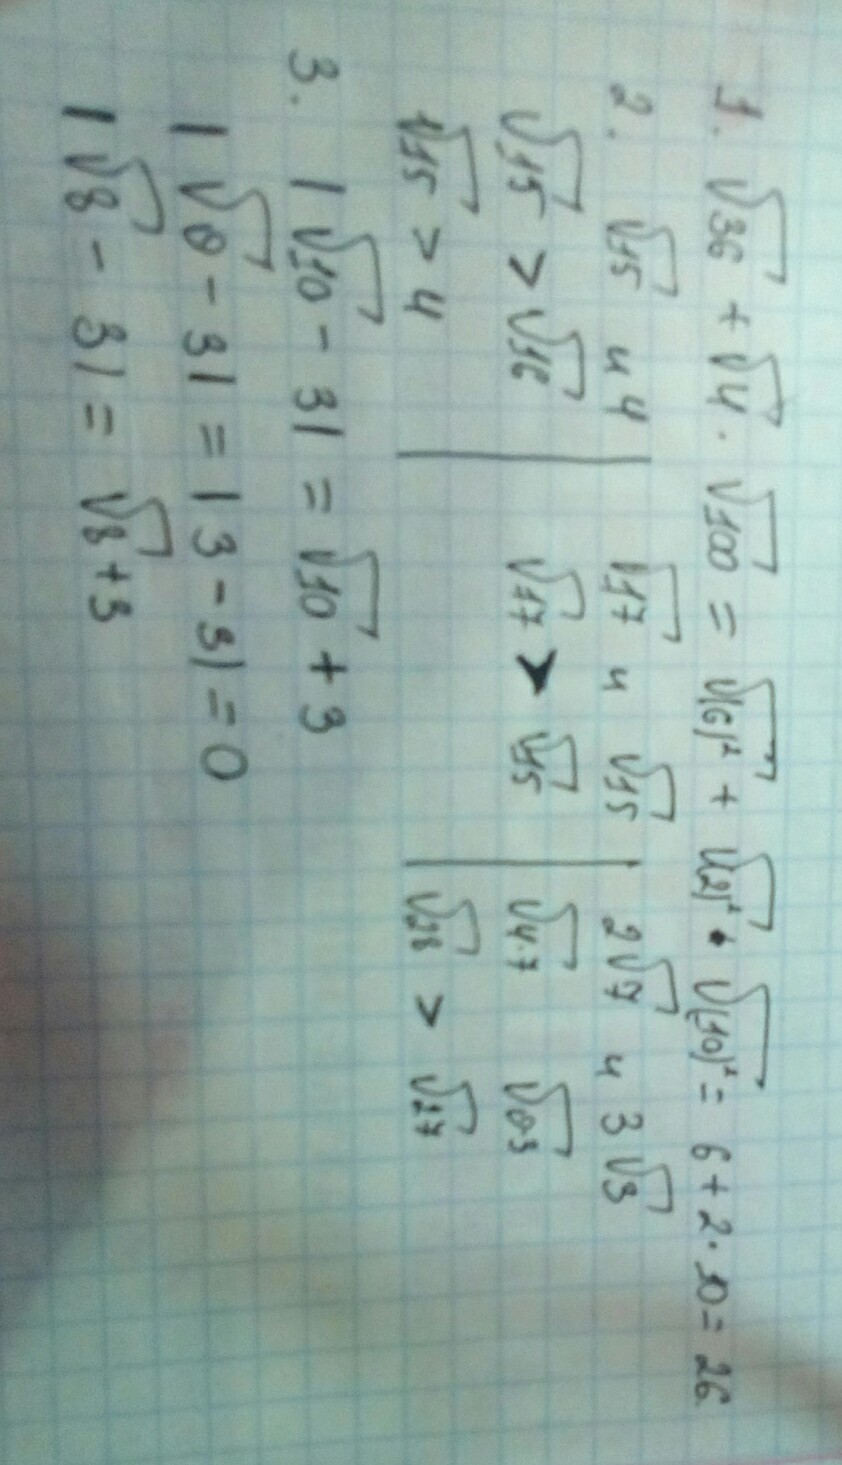 1. √36 + √4 · √100 = √(6)² + √(2)² · √(10)² = 6 + 2 · 10 = 26
2. √15 и 4 | √17 и √15 | 2√7 и 3√3
√15 > √16 | √17 > √15 | √4·7 √9·3
√15 > 4 | √28 > √27
3. |√10 - 3| = √10 + 3
|√9 - 3| = |3 - 3| = 0
|√8 - 3| = √8 + 3